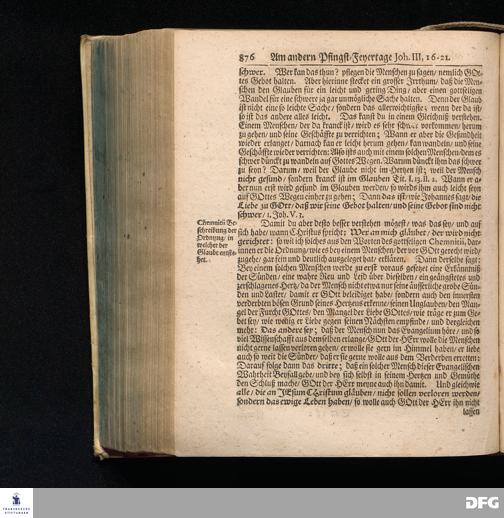 876 Am andern Pfingst-Feyertage Joh. III, 16-21.
schwer. Wer kan das thun? pflegen die Menschen zu sagen/ nemlich GOt-
tes Gebot halten. Aber hierinne stecket ein grosser Irrthum/ daß die Men-
schen den Glauben für ein leicht und gering Ding/ aber einen gottseligen
Wandel für eine schwere ja gar unmögliche Sache halten. Denn der Glaub
ist nicht eine so leichte Sache/ sondern das allerwichtigste; wenn der da ist/
so ist das andere alles leicht. Das kanst du in einem Gleichniß verstehen.
Einem Menschen/ der da kranck ist/ wird es sehr schwer vorkommen/ herum
zu gehen/ und seine Geschäffte zu verrichten; Wann er aber die Gesundheit
wieder erlanget/ darnach kan er leicht herum gehen/ kan wandeln/ und seine
Geschäffte wieder verrichten: Also ists auch mit einem solchen Menschen/ dem es
schwer dünckt zu wandeln auf Gottes Wegen. Warum dünckt ihm das schwer
zu seyn? Darum/ weil der Glaube nicht im Hertzen ist; weil der Mensch
nicht gesund/ sondern kranck ist im Glauben Tit. I, 13. II. 2. Wann er a-
ber nun erst wird gesund im Glauben werden/ so wirds ihm auch leicht seyn
auf GOttes Wegen einher zu gehen; Dann das ist/ wie Johannes sagt/ die
Liebe zu GOtt/ daß wir seine Gebot halten/ und seine Gebot sind nicht
schwer/ 1. Joh. V. 3.
Chemnitii Be-
schreibung der
Ordnung/ in
welcher der
Glaube entste-
het.
Damit du aber desto besser verstehen mögest/ was das sey/ und auf
sich habe/ wann Christus spricht: Wer an mich gläubet/ der wird nicht
gerichtet: so wil ich solches aus den Worten des gottseligen Chemnitii, dar-
innen er die Ordnung/ wie es bey einem Menschen/ der vor GOtt gerecht wird/
zugehe/ gar fein und deutlich ausgeleget hat/ erklären. Dann derselbe sagt:
Bey einem solchen Menschen werde zu erst voraus gesetzet eine Erkänntniß
der Sünden/ eine wahre Reu und Leid über dieselben/ ein geängstetes und
zerschlagenes Hertz/ da der Mensch nicht etwa nur seine äusserliche grobe Sün-
den und Laster/ damit er GOtt beleidiget habe/ sondern auch den innersten
verderbten bösen Grund seines Hertzens erkenne/ seinen Unglauben/ den Man-
gel der Furcht GOttes/ den Mangel der Liebe GOttes/ wie träge er zum Ge-
bet sey/ wie wenig er Liebe gegen seinen Nächsten empfinde/ und dergleichen
mehr: Das andere sey; daß der Mensch nun das Evangelium höre/ und so
viel Wissenschafft aus demselben erlange/ GOtt der HErr wolle die Menschen
nicht gerne lassen verloren gehen/ er wolle sie gern im Himmel haben/ er liebe
auch so weit die Sünder/ daß er sie gerne wolle aus dem Verderben erretten:
Darauf folge dann das dritte; daß ein solcher Mensch dieser Evangelischen
Wahrheit Beyfall gebe/ und bey sich selbst in seinem Hertzen und Gemüthe
den Schluß mache/ GOtt der HErr meyne auch ihn damit. Und gleichwie
alle/ die an JEsum Christum gläuben/ nicht sollen verloren werden/
sondern das ewige Leben haben/ so wolle auch GOtt der HErr ihn nicht
lassen
FRANCKESCHE
STIFTUNGEN
DFG